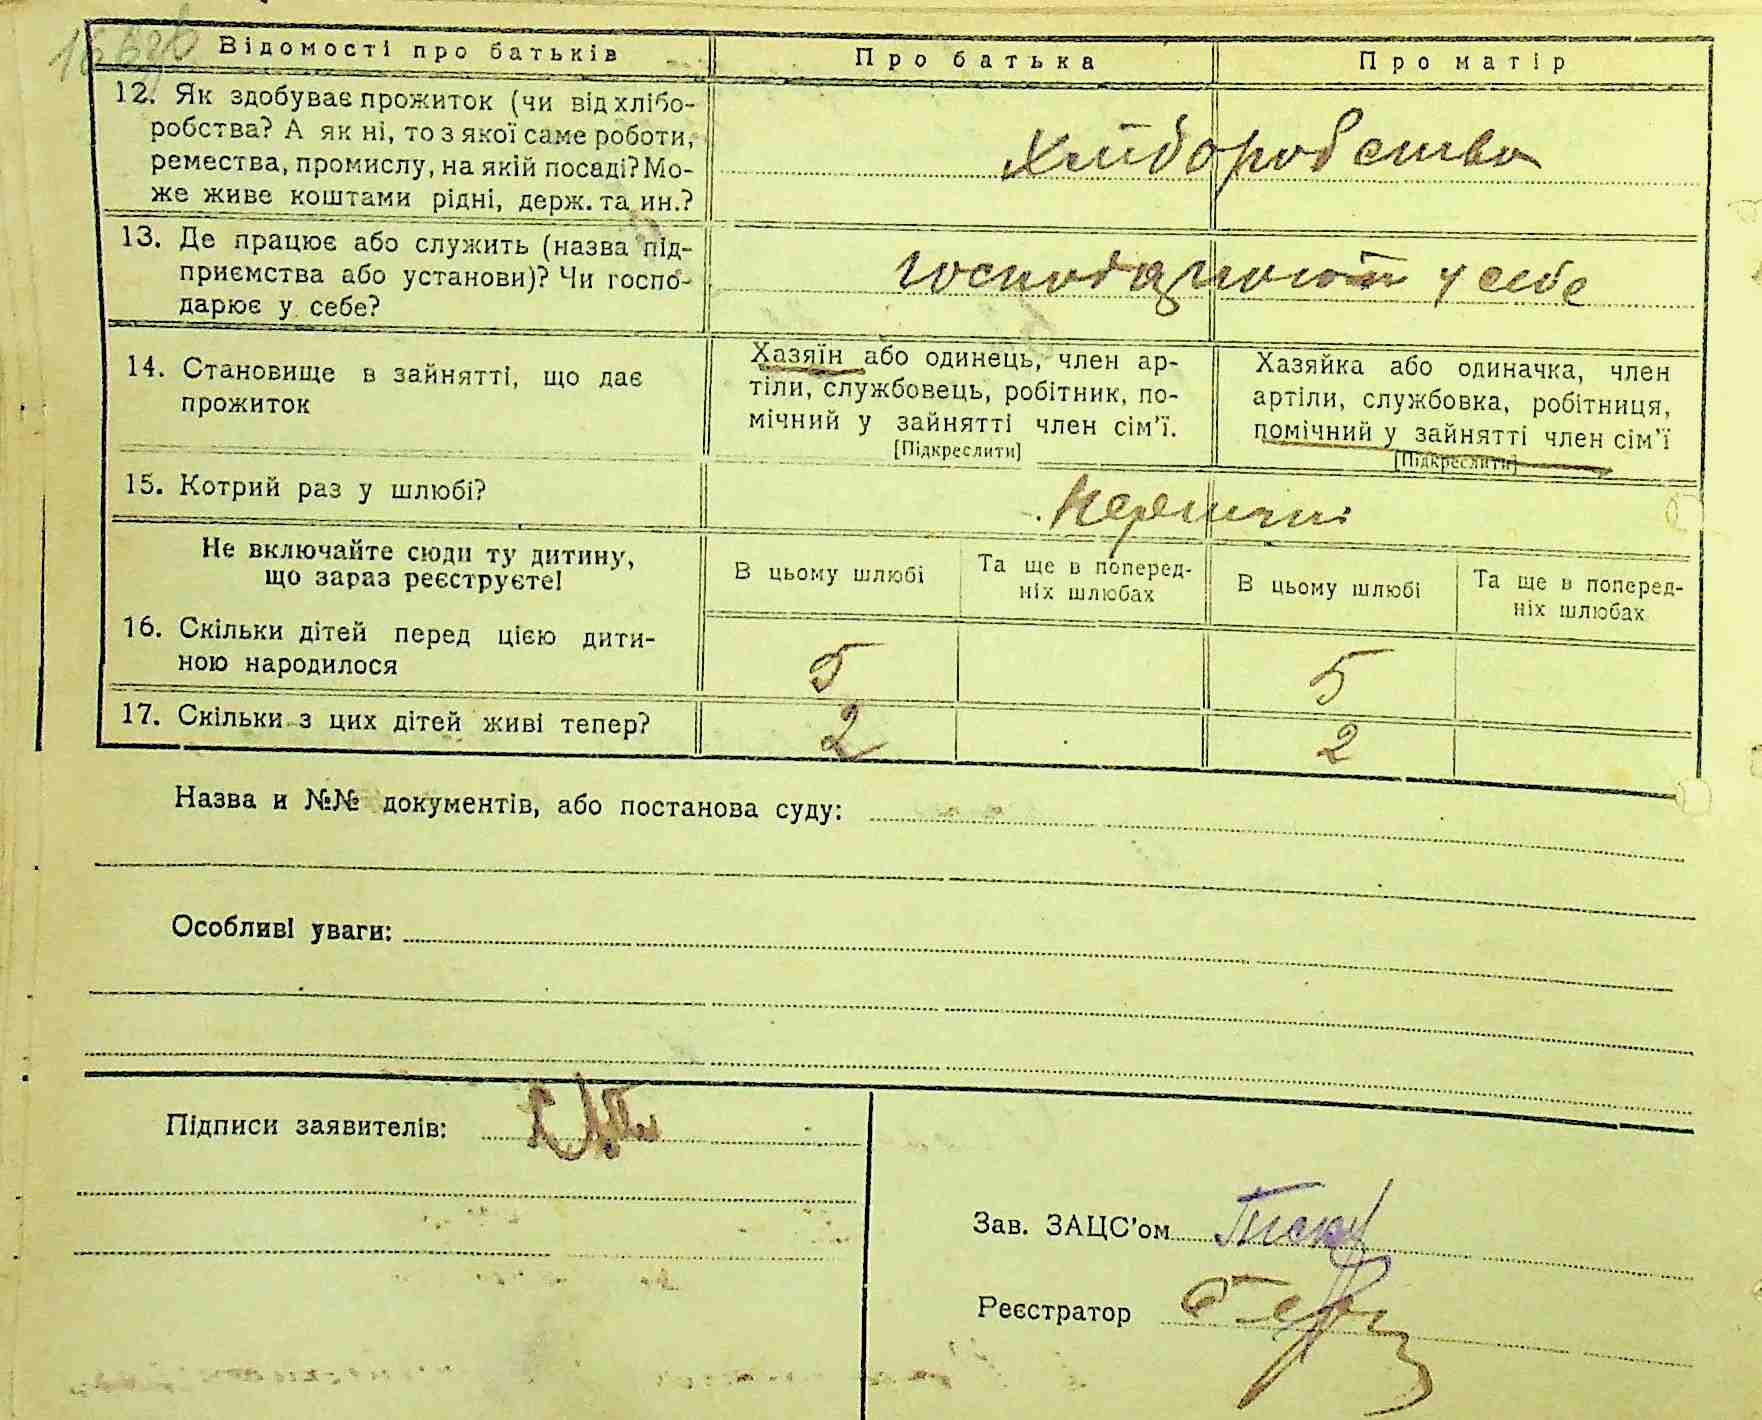 Відомості про батьків
Про батька
Про матір
12. Як здобуває прожиток (чи від хлібо-
робства? А як ні, то з якої саме роботи,
ремества, промислу, на якій посаді? Мо-
же живе коштами рідні, держ. та ин.?
Хліборобство
13. Де працює або служить (назва під-
приємства або установи)? Чи госпо-
дарює у себе?
господарюють у себе
14. Становище в зайнятті, що дає
прожиток
Хазяїн або одинець, член ар-
тіли, службовець, робітник, по-
мічний у зайнятті член сім'ї.
[Підкреслити]
Хазяйка або одиначка, член
артіли, службовка, робітниця,
помічний у зайнятті член сім'ї
[Підкреслити]
15. Котрий раз у шлюбі?
Не включайте сюди ту дитину,
що зараз реєструєте!
В цьому шлюбі
Та ще в поперед-
ніх шлюбах
В цьому шлюбі
Та ще в поперед-
ніх шлюбах
16. Скільки дітей перед цією дити-
ною народилося
5
5
17. Скільки з цих дітей живі тепер?
2
2
Назва и №№ документів, або постанова суду:
Особливі уваги:
Підписи заявителів:
Зав. ЗАЦС'ом
Реєстратор